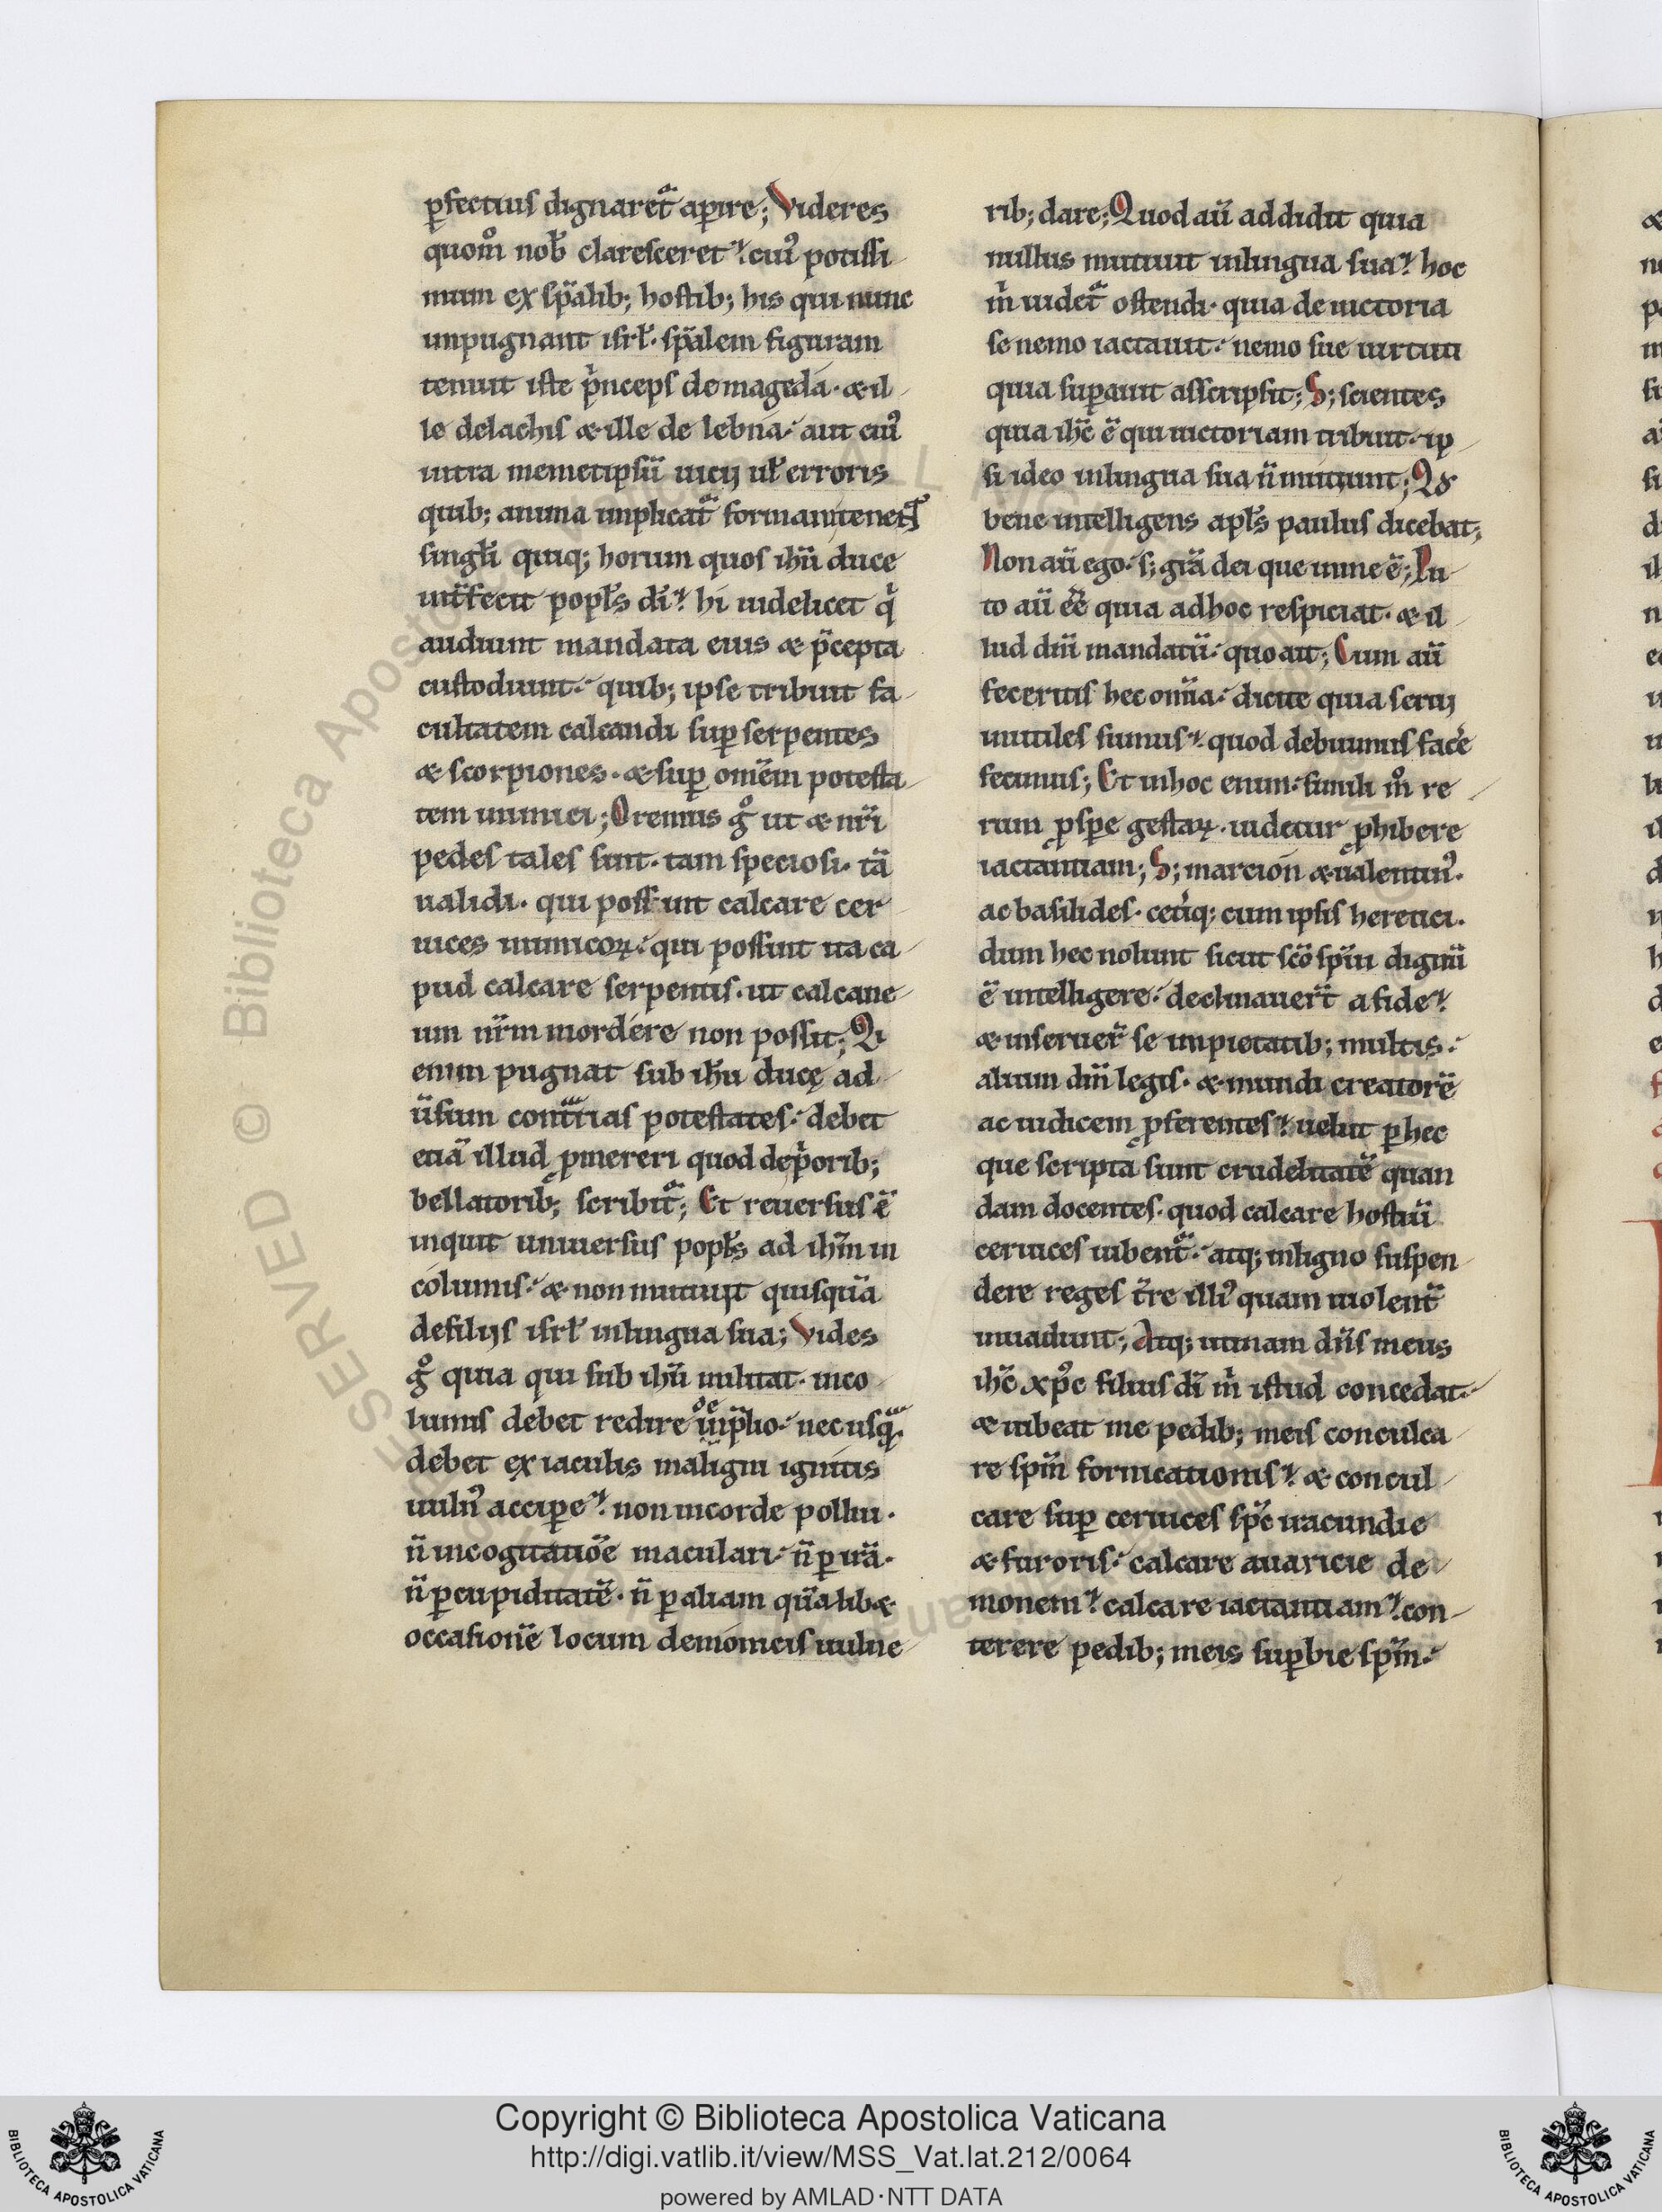 ꝑfectius dignaret᷑ aꝑire; Videres
quom̊ nob̄ claresceret. cui᷒ potissi
mum ex sp̄alib; hostib; his qui nunc
inpugnant isrl̄. sp̄alem figuram
tenuit iste p̍nceps de mageda. & il
le delachis & ille de lebna. aut cui᷒
intra memetipsū uicij ul̄ erroris
quib; anima implicat᷑ formam tenet
singl̄i quiq; horum quos ihū duce
int̄fecit popl̄s dī. hi uidelicet q̍
audiunt mandata eius & p̄cepta
custodiunt. quib; ipse tribuit fa
cultatem calcandi suꝑ serpentes
& scorpiones. & suꝑ omēm potesta
tem inimici; Oremus g̊ ut & nr̄i
pedes tales sint. tam speciosi. tā
ualidi. qui possint calcare cer
uices inimicoꝝ. qui possint ita ca
pud calcare serpentis. ut calcane
um nr̄m mordere non possit; Qi
enim pugnat sub ihū ducę ad
ūsum cont̄rias potestates. debet
etiā illud ꝓmereri quod dep̍orib;
bellatorib; scribit᷑; Et reuersus ē
inquit uniuersus popl̄s ad ihm̄ in
columis. & non mutiuit quisquā
defilijs isrl̄ inlingua sua; Vides
g̊ quia qui sub ihū militat. inco
lumis debet redire
debet ex iaculis maligni ignitis
uuln᷒ acciꝑe. non incorde pollui.
n̄ incogitatiōe maculari. n̄ ꝑ irā.
n̄ ꝑ cupiditatē. n̄ ꝑ aliam quālib&
occasionē locum demonicis uulne
rib; dare; Quod aū addidit quia
nullus mutiuit inlingua sua. hoc
m̍ uidet᷑ ostendi. quia de uictoria
se nemo iactauit. nemo sue uirtuti
quia suꝑauit asscripsit; S; scientes
quia ihc̄ ē qui uictoriam tribuit. ip
si ideo inlingua sua n̄ mutiunt; Qd
bene intelligens apl̄s paulus dicebat;
Non aū ego. s; grā dei que inme ē; Pu
to aū eē quia adhoc respiciat. & il
lud dn̄i mandatū. quo ait; Cum aū
feceritis hec omīa. dicite quia serui
inutiles sumus. quod debuimus facē
fecimus; Et inhoc enim. simili m̊ re
rum ꝓspe gestaꝝ. uidetur ꝓhibere
iactantiam; S; marcion & ualentin᷒.
ac basilides. cetiq; cum ipsis heretici.
dum hec nolunt sicut scō spū dignū
ē intelligere. declinauer̄t a fide.
& inseruer̄ se impietatib; multis.
alium dn̄i legis. & mundi creatorē
ac iudicem ꝓferentes. uelut ꝑ hec
que scripta sunt crudelitatē quan
dam docentes. quod calcare hostiū
ceruices iubent᷑. atq; inligno suspen
dere reges t̄re illi᷒ quam uiolent̄
inuadunt; Atq; utinam dn̄s meus
ihc̄ xp̄c filius dī m̍ istud concedat.
& iubeat me pedib; meis conculca
re spm̄ fornicationis. & concul
care suꝑ ceruices spc̄ iracundie
& furoris. calcare auaricie de
monem. calcare iactantiam. con
terere pedib; meis suꝑbie spm̄.
Copyright © Biblioteca Apostolica Vaticana
http://digi.vatlib.it/view/MSS_Vat.lat.212/0064
powered by AMLAD·NTT DATA
BIBLIOTECA APOSTOLICA VATICANA
BIBLIOTECA APOSTOLICA VATICANA